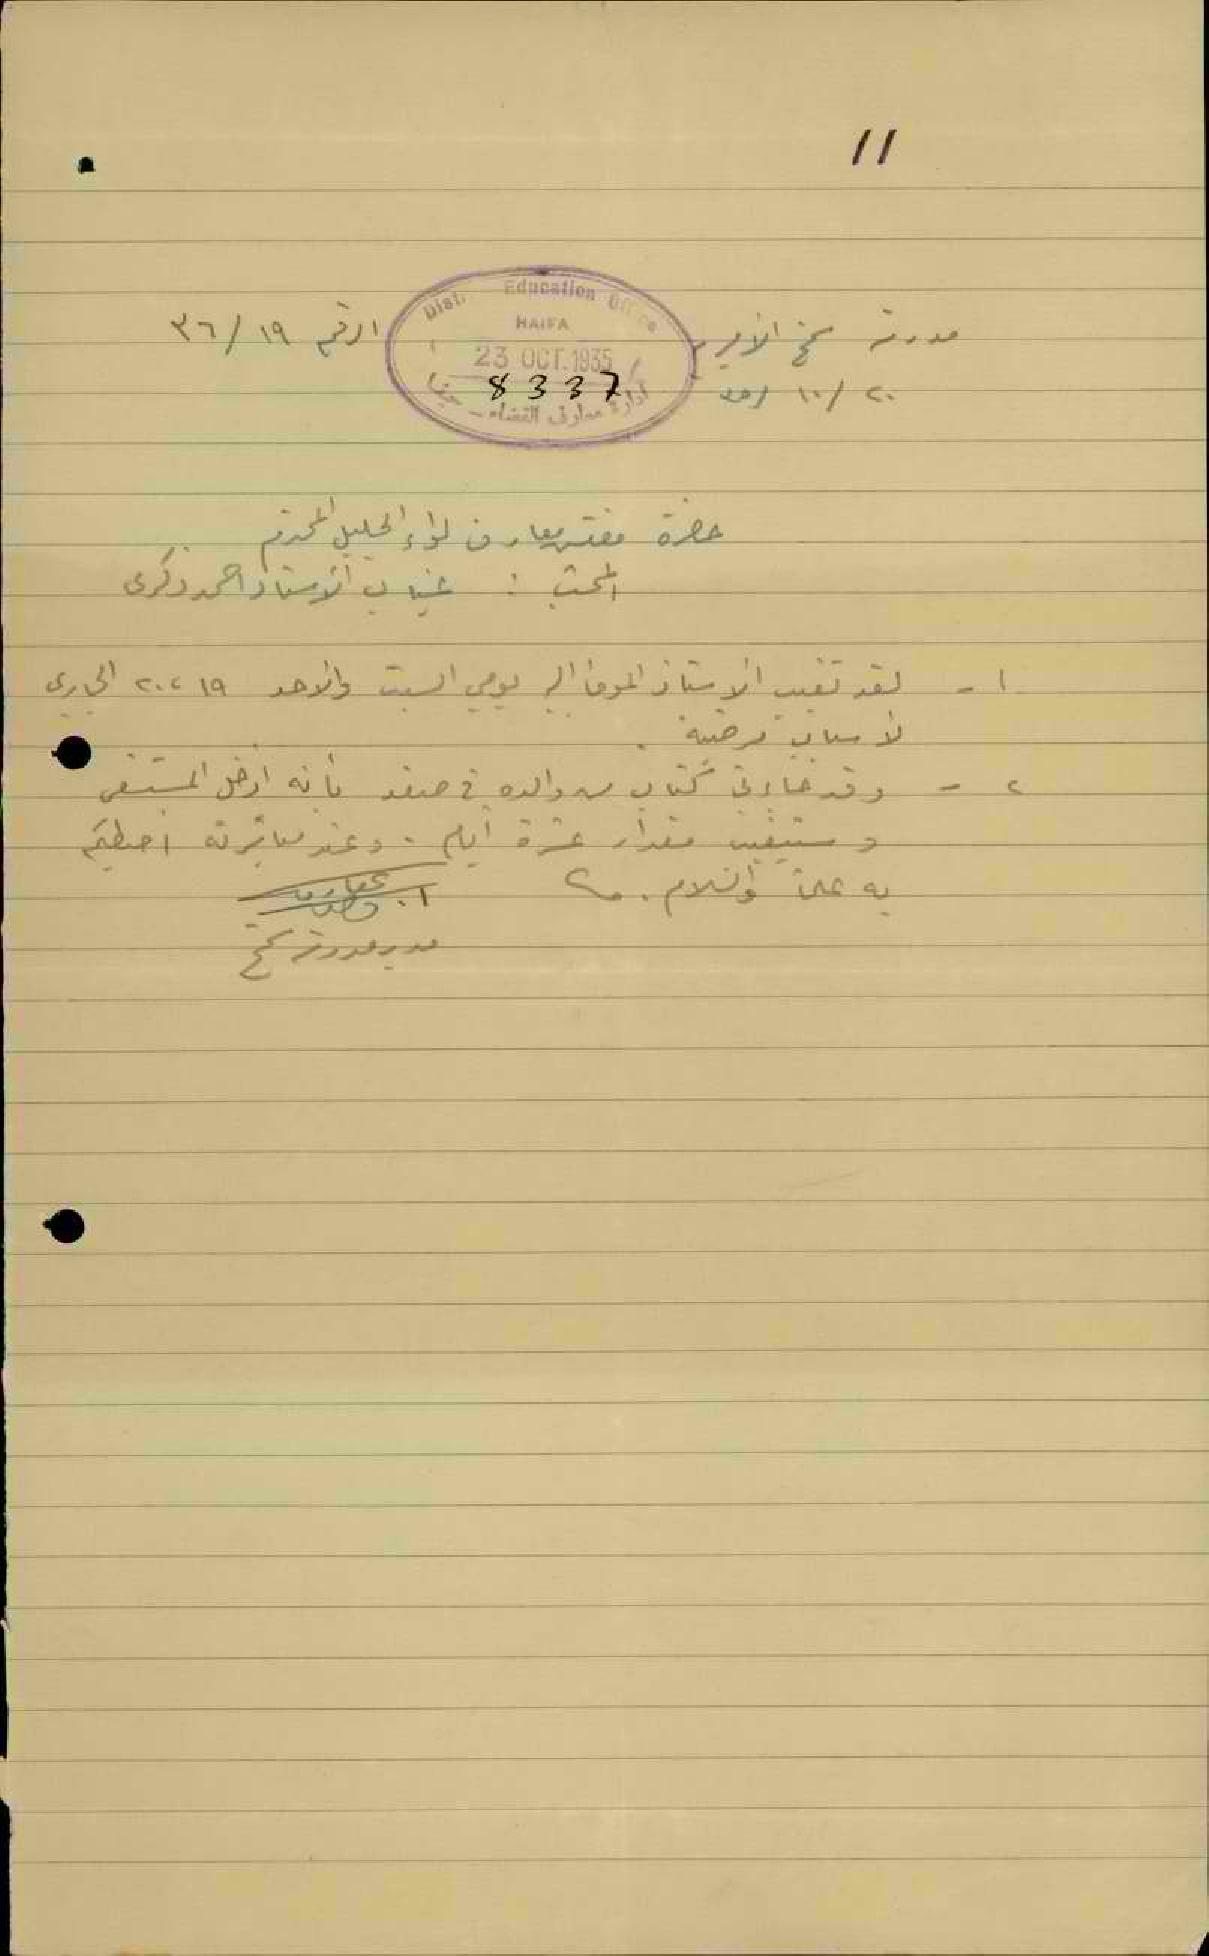 11
مدرسة سمخ الأميرية
الرقم ١٩/ ٣٦
Distr Education Office
HAIFA
23 OCT. 1935
8337
ادارة معارف القضاء - حيفا
٢٠/ ١٠/ ٣٥
حضرة مفتش معارف لواء الجليل المحترم
المبحث : غياب الأستاذ احمد ذكرى
١ - لقد تغيب الأستاذ الموما اليه يومي السبت والاحد ١٩ ، ٢٠ الجاري
لاسباب مرضية .
٢ - وقد جاءني كتاب من والده في صفد بأنه ادخل المستشفى
وسيتغيب مقدار عشرة أيام . وعند مباشرته احيطكم
به علماً والسلام .
مدير مدرسة سمخ